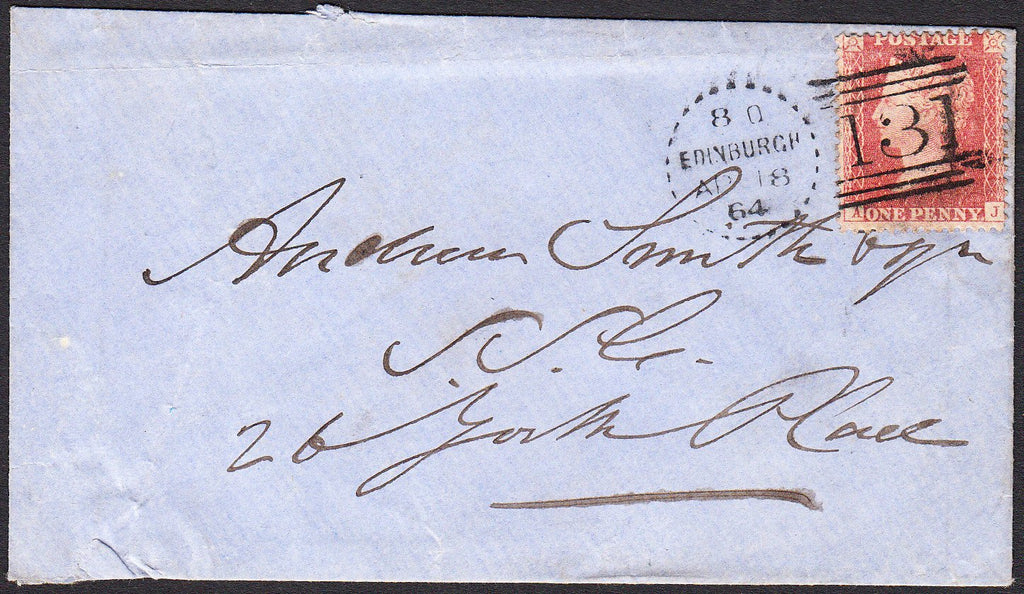 POSTAGE
8 O
EDINBURGH
AP 18
64
131
ONE PENNY J
Andrew Smith Esqr
S.S.C.
26 York Place